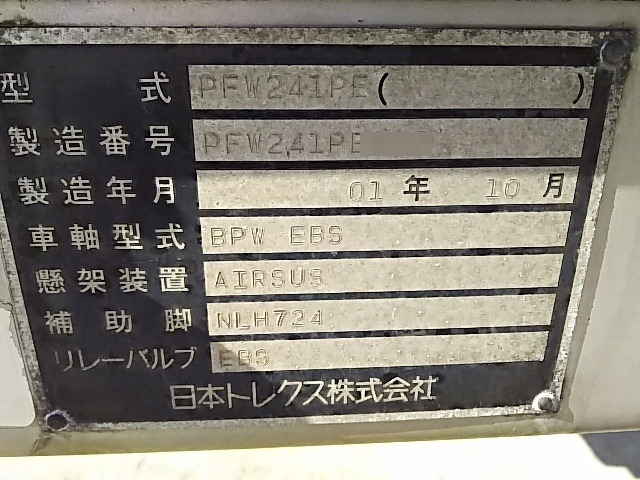 型式 PFW241PE( )
製造番号 PFW241PE
製造年月 01年 10月
車軸型式 BPW EBS
懸架装置 AIRSUS
補助脚 NLH724
リレーバルブ EBS
日本トレクス株式会社